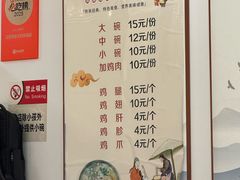 必吃榜
2025
大 碗 15元/份
中 碗 12元/份
小 碗 10元/份
加鸡肉 10元/份
鸡 腿 15元/个
鸡 翅 10元/个
鸡 肝 4元/个
鸡 胗 4元/个
鸡 爪 4元/个
禁止吸烟
No Smoking
小孩外
供小碗